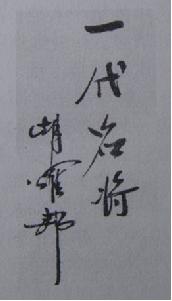 一代名将
胡耀邦